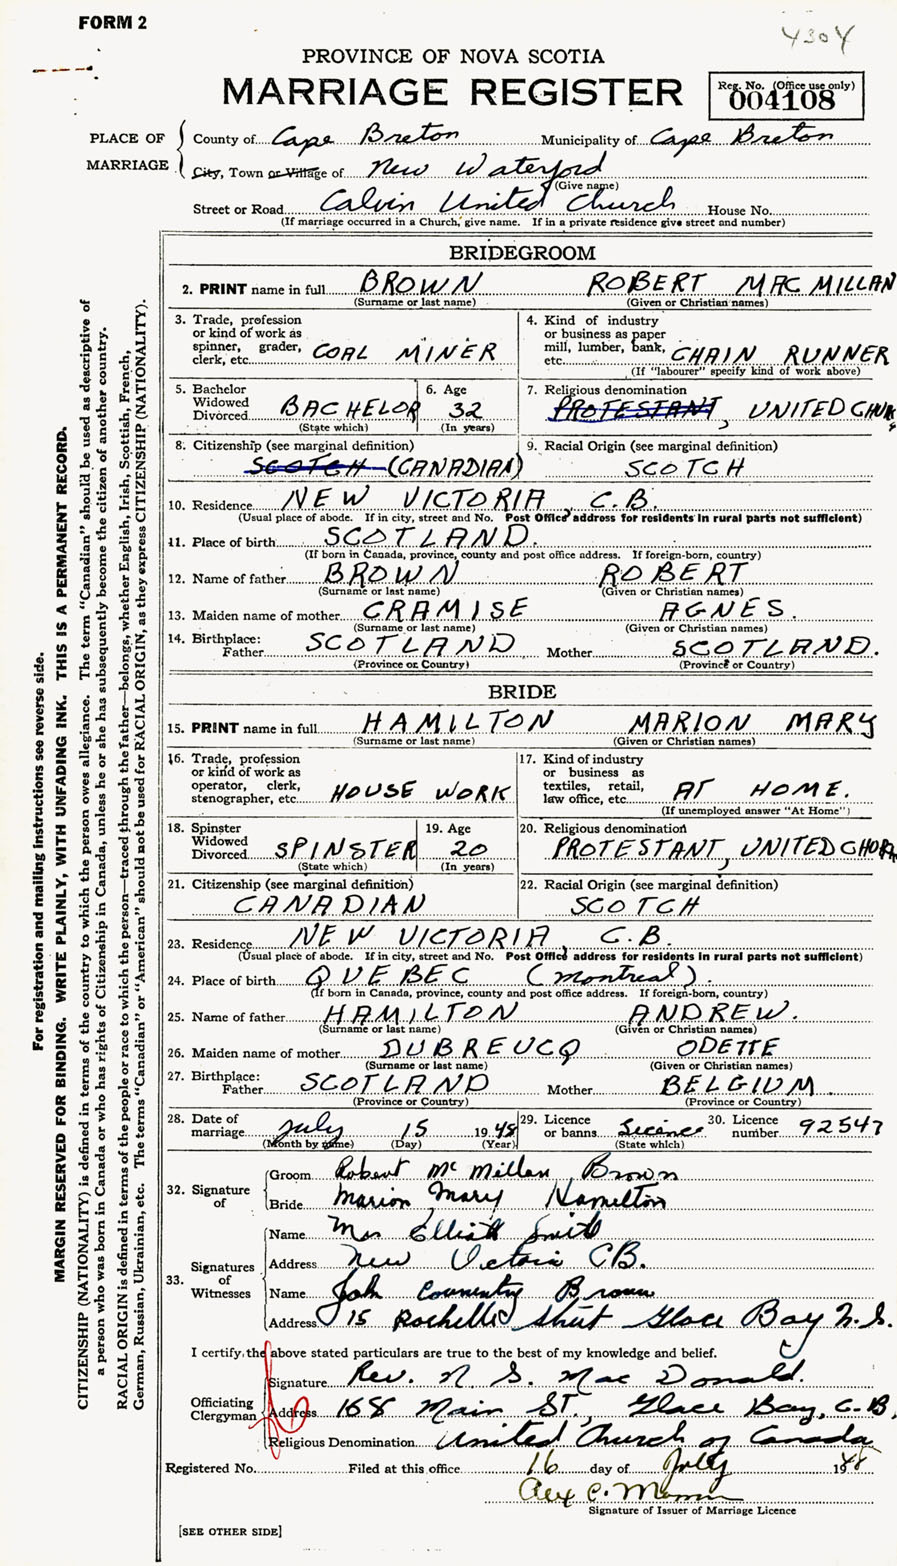 FORM 2
4304
PROVINCE OF NOVA SCOTIA
MARRIAGE REGISTER
Reg. No. (Office use only)
004108
PLACE OF MARRIAGE
County of Cape Breton Municipality of Cape Breton
City, Town or Village of New Waterford
(Give name)
Street or Road Calvin United Church House No.
(If marriage occurred in a Church, give name. If in a private residence give street and number)
BRIDEGROOM
2. PRINT name in full BROWN ROBERT MAC MILLAN
(Surname or last name) (Given or Christian names)
3. Trade, profession or kind of work as spinner, grader, clerk, etc. COAL MINER
4. Kind of industry or business as paper mill, lumber, bank, etc. CHAIN RUNNER
(If "labourer" specify kind of work above)
5. Bachelor Widowed Divorced BACHELOR
(State which)
6. Age 32
(In years)
7. Religious denomination
PROTESTANT, UNITED CHUR
8. Citizenship (see marginal definition)
SCOTCH (CANADIAN)
9. Racial Origin (see marginal definition)
SCOTCH
10. Residence NEW VICTORIA, C.B.
(Usual place of abode. If in city, street and No. Post Office address for residents in rural parts not sufficient)
11. Place of birth SCOTLAND.
(If born in Canada, province, county and post office address. If foreign-born, country)
12. Name of father BROWN ROBERT
(Surname or last name) (Given or Christian names)
13. Maiden name of mother CRAMISE AGNES.
(Surname or last name) (Given or Christian names)
14. Birthplace: Father SCOTLAND Mother SCOTLAND.
(Province or Country) (Province or Country)
BRIDE
15. PRINT name in full HAMILTON MARION MARY
(Surname or last name) (Given or Christian names)
16. Trade, profession or kind of work as operator, clerk, stenographer, etc. HOUSE WORK
17. Kind of industry or business as textiles, retail, law office, etc. AT HOME.
(If unemployed answer "At Home")
18. Spinster Widowed Divorced SPINSTER
(State which)
19. Age 20
(In years)
20. Religious denomination
PROTESTANT, UNITED CHUR
21. Citizenship (see marginal definition)
CANADIAN
22. Racial Origin (see marginal definition)
SCOTCH
23. Residence NEW VICTORIA, C.B.
(Usual place of abode. If in city, street and No. Post Office address for residents in rural parts not sufficient)
24. Place of birth QUEBEC (Montreal).
(If born in Canada, province, county and post office address. If foreign-born, country)
25. Name of father HAMILTON ANDREW.
(Surname or last name) (Given or Christian names)
26. Maiden name of mother DUBREUCQ ODETTE
(Surname or last name) (Given or Christian names)
27. Birthplace: Father SCOTLAND Mother BELGIUM
(Province or Country) (Province or Country)
28. Date of marriage July 15 1948
(Month by name) (Day) (Year)
29. Licence or banns Licence
(State which)
30. Licence number 92547
32. Signature of
Groom Robert Mc Millan Brown
Bride Marion Mary Hamilton
33. Signatures of Witnesses
Name Mrs Elliott Smith
Address New Victoria CB.
Name John Coventry Brown
Address 15 Rochelle Street Glace Bay N.S.
I certify the above stated particulars are true to the best of my knowledge and belief.
Officiating Clergyman
Signature Rev. N. S. Mac Donald.
Address 168 Main ST., Glace Bay, C.B.
Religious Denomination United Church of Canada
Registered No. Filed at this office 16 day of July 1948
Alex C.
Signature of Issuer of Marriage Licence
[SEE OTHER SIDE]
For registration and mailing instructions see reverse side.
MARGIN RESERVED FOR BINDING. WRITE PLAINLY, WITH UNFADING INK. THIS IS A PERMANENT RECORD.
CITIZENSHIP (NATIONALITY) is defined in terms of the country to which the person owes allegiance. The term "Canadian" should be used as descriptive of
a person who was born in Canada or who has rights of Citizenship in Canada, unless he or she has subsequently become the citizen of another country.
RACIAL ORIGIN is defined in terms of the people or race to which the person—traced through the father—belongs, whether English, Irish, Scottish, French,
German, Russian, Ukrainian, etc. The terms "Canadian" or "American" should not be used for RACIAL ORIGIN, as they express CITIZENSHIP (NATIONALITY).